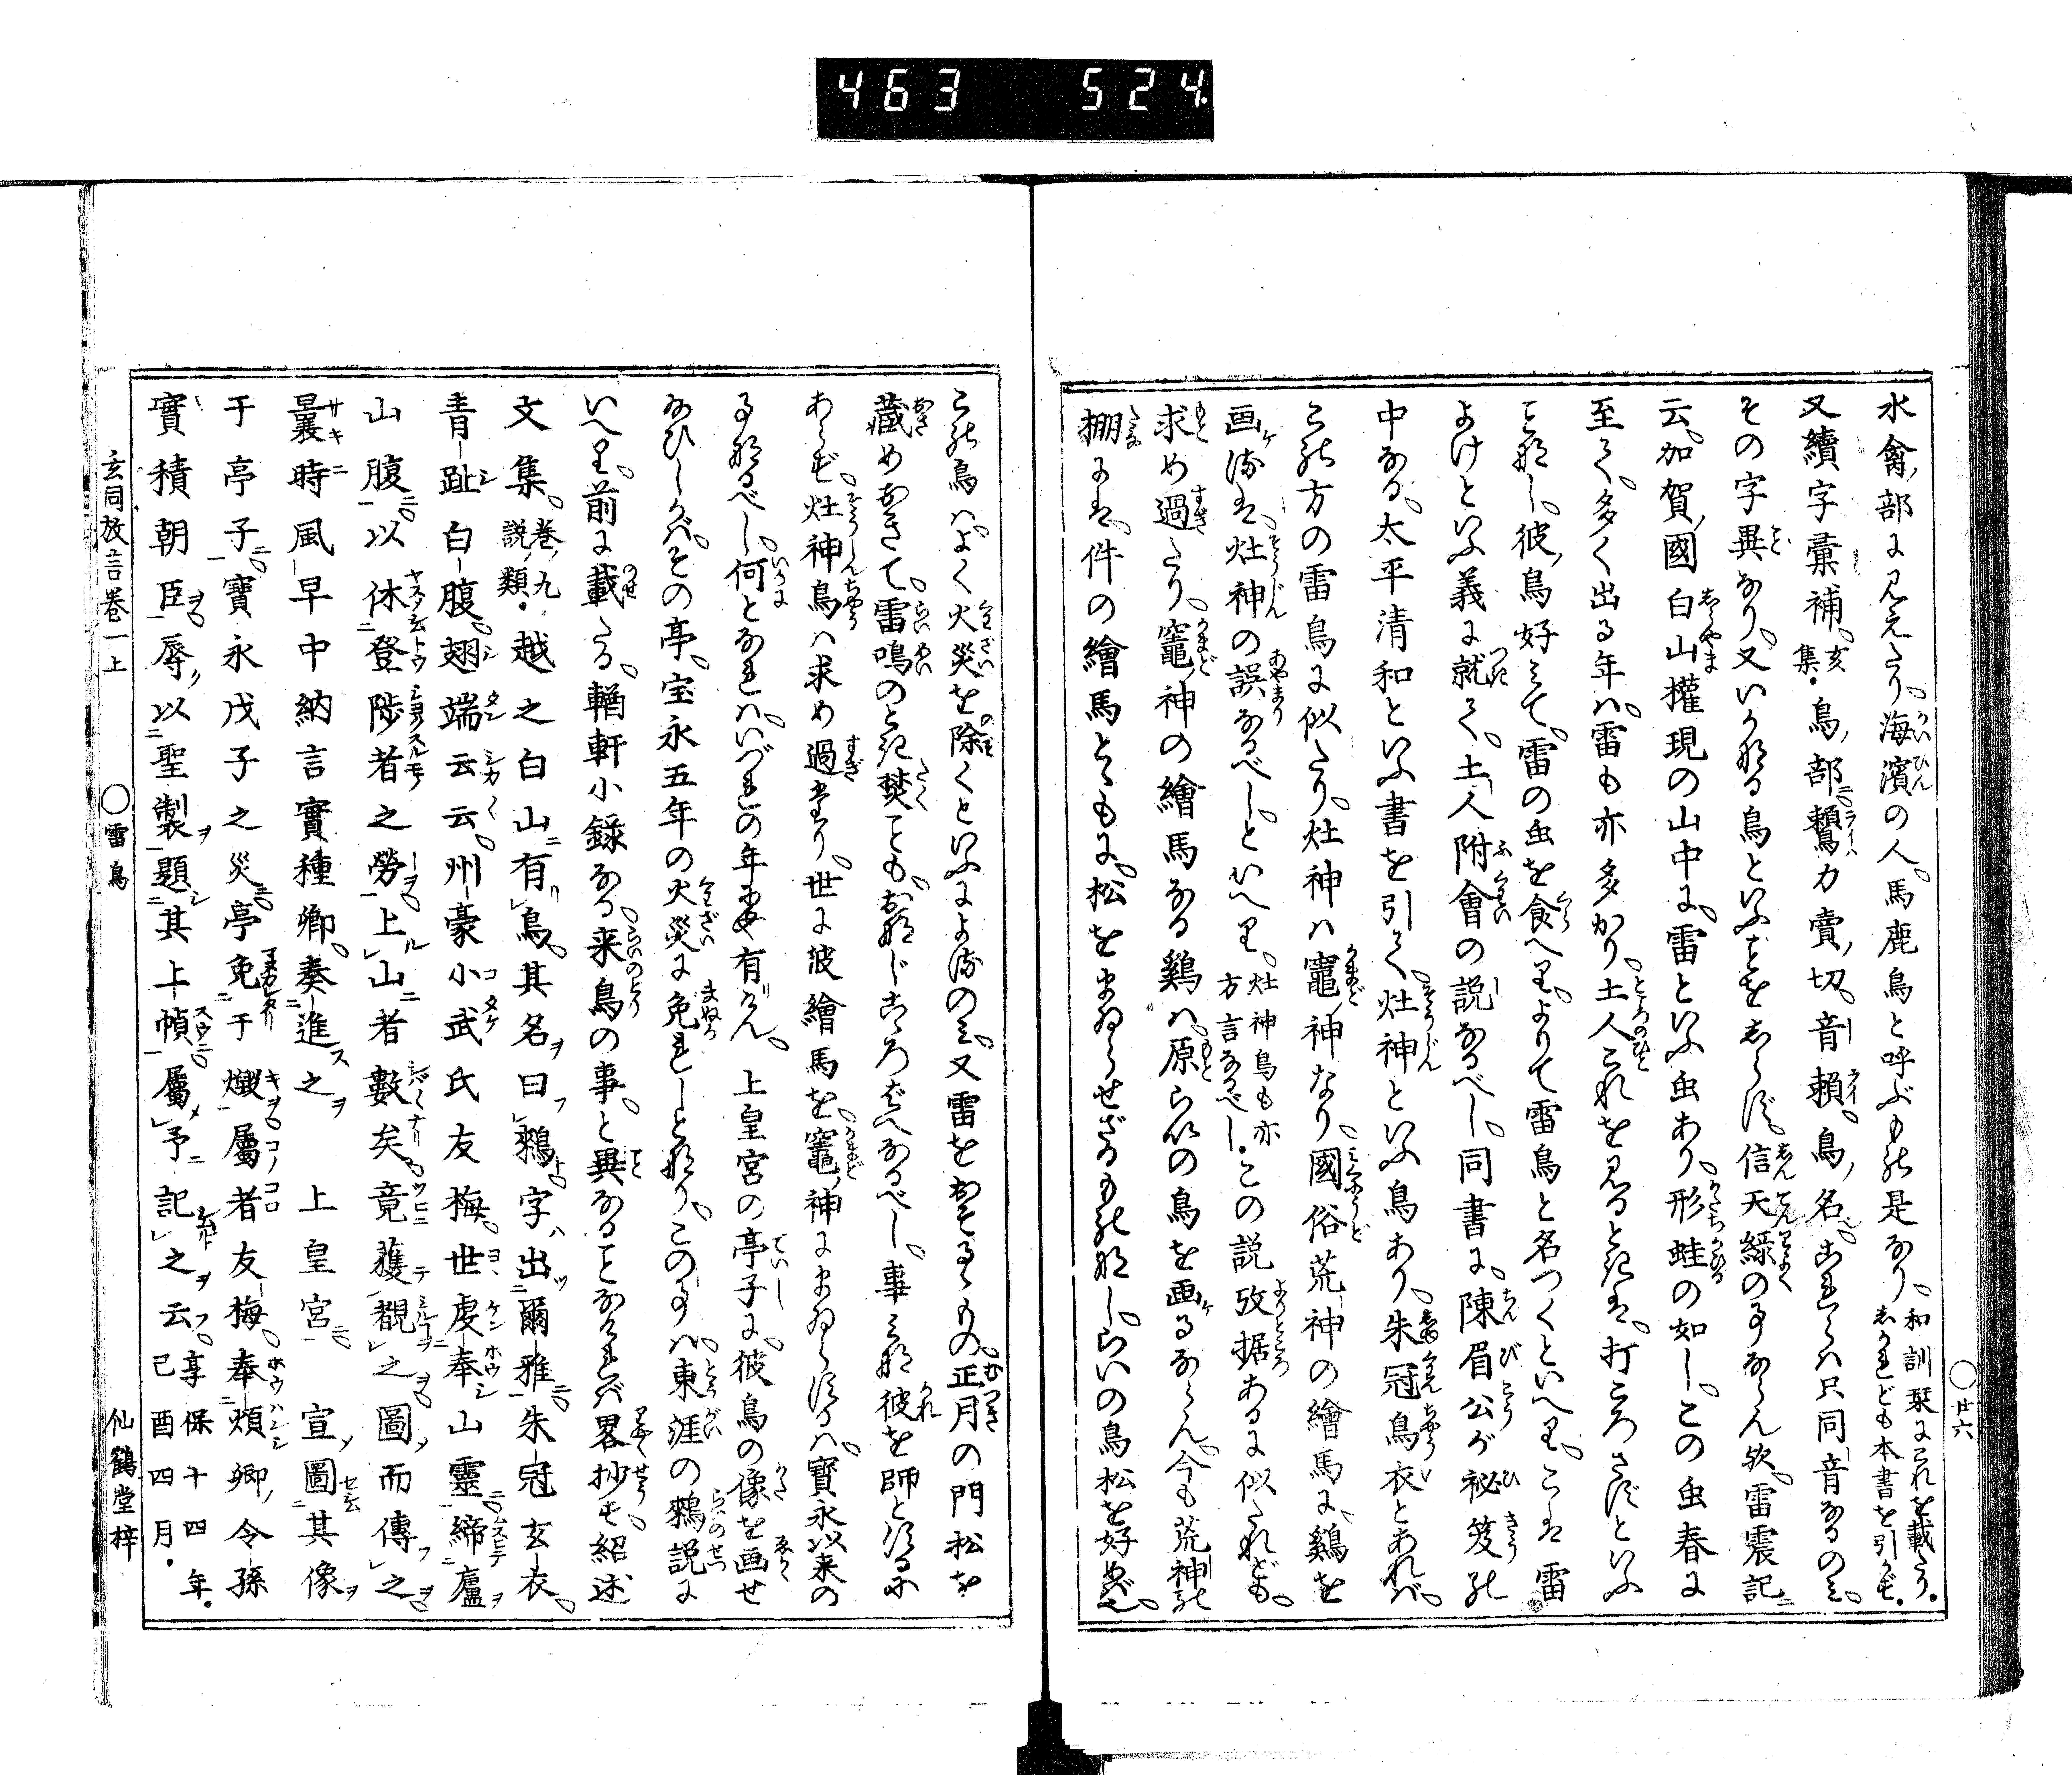 463 524
水禽ノ部に見えたり、海濱の人、馬鹿鳥と呼ぶもの是なり、和訓栞にこれを載たり、しかれども本書を引かず、
又續字彙補、亥集、鳥ノ部ニ、鷘カ賣ノ切、音賴、鳥ノ名、これらハ只同音なるのミ、
その字異なり、又いかなる鳥といふことをしらず、信天緣の事ならん欤、雷震記ニ
云、加賀ノ國白山權現の山中に、雷といふ虫あり、形蛙の如し、この虫春に
至て、多く出る年ハ、雷も亦多かり、土人これを見るときは、打ころさずといふ
ことなし、彼ノ鳥好ミて、雷の虫を食へり、よりて雷鳥と名つくといへり、こは雷
よけといふ義に就て、土人附會の説なるべし、同書に、陳眉公が祕笈の
中なる、太平清和といふ書を引て、灶神といふ鳥あり、朱冠鳥衣とあれバ、
この方の雷鳥に似たり、灶神ハ竈ノ神なり、國俗荒神の繪馬に、鷄を
画ケるは、灶神の誤なるべし、といへり、灶神鳥も亦方言なるべし、この説攷据あるに似たれども、
求め過たり、竈ノ神の繪馬なる鷄ハ、原らいの鳥を画ケるならん、今も荒神の
棚には、件の繪馬とゝもに、松をまゐらせざるものなし、らいの鳥松を好めバ也、
この鳥ハよく火災を除くといふによるのミ、又雷をおそるゝもの、正月の門松を
藏めおきて、雷鳴のとき焚くことも、おなじこゝろばへなるべし、事ミな彼を師とするに
あらず、灶神鳥ハ求め過たり、世に彼繪馬を、竈ノ神にまゐらするハ、寶永以来の
事なるべし、何となれハ、いづれの年歟有けん、上皇宮の亭子に、彼鳥の像を画せ
給ひしかバ、その亭、宝永五年の火災に免れしとなり、この事ハ、東涯の鷘説に
いへり、前に載たる、輶軒小錄なる、来鳥の事と異なることなけれバ畧抄す、紹述
文集、卷ノ九説類、越之白山有鳥、其名曰鷘、字ハ出爾雅、朱冠玄衣、
青趾白腹、翅端云云、州豪小武氏友梅、世虔奉山靈、締廬ヲ
山腹、以休登陟者之勞、上山者數矣、竟獲覩之圖而傳之、
曩時風早中納言實種卿、奏進之、上皇宮、宣圖其像
于亭子、寶永戊子之災、亭免于燬、屬者友梅、奉煩卿ノ令孫
實積朝臣、辱以聖製題其上幀、屬予記之云、享保十四年己酉四月、
玄同放言卷一上 ○雷鳥 仙鶴堂梓
○廿六